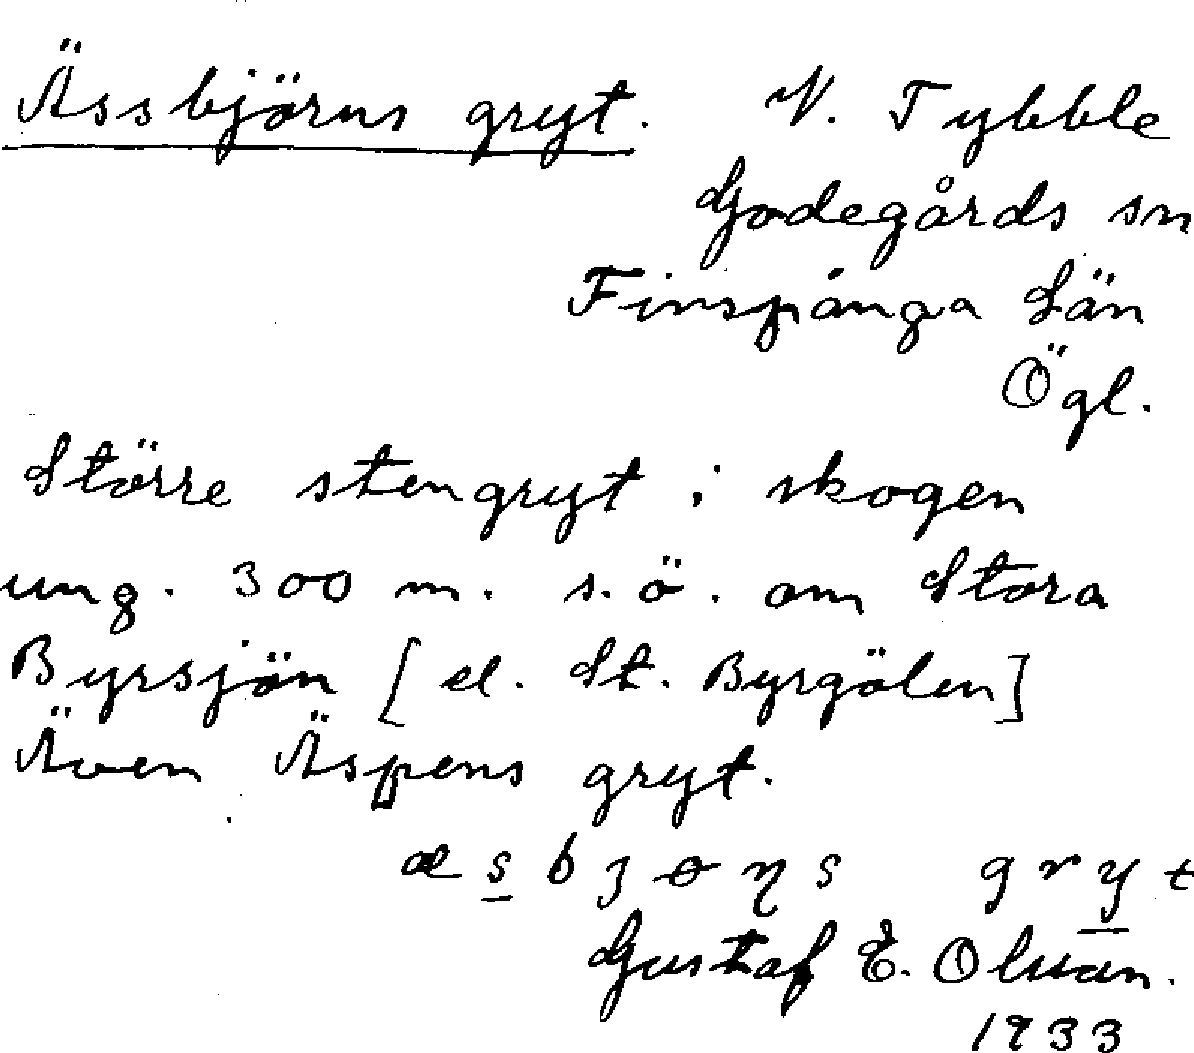 Ässbjörns gryt. N. Tybble
Godegårds sn
Finspånga Län
Ögl.
Större stengryt i skogen
ung. 300 m. s.ö. om Stora
Byrsjön [el. St. Byrgölen]
Även Äspens gryt.
æsbjɵɳs gryt
Gustaf E. Olsson.
1933